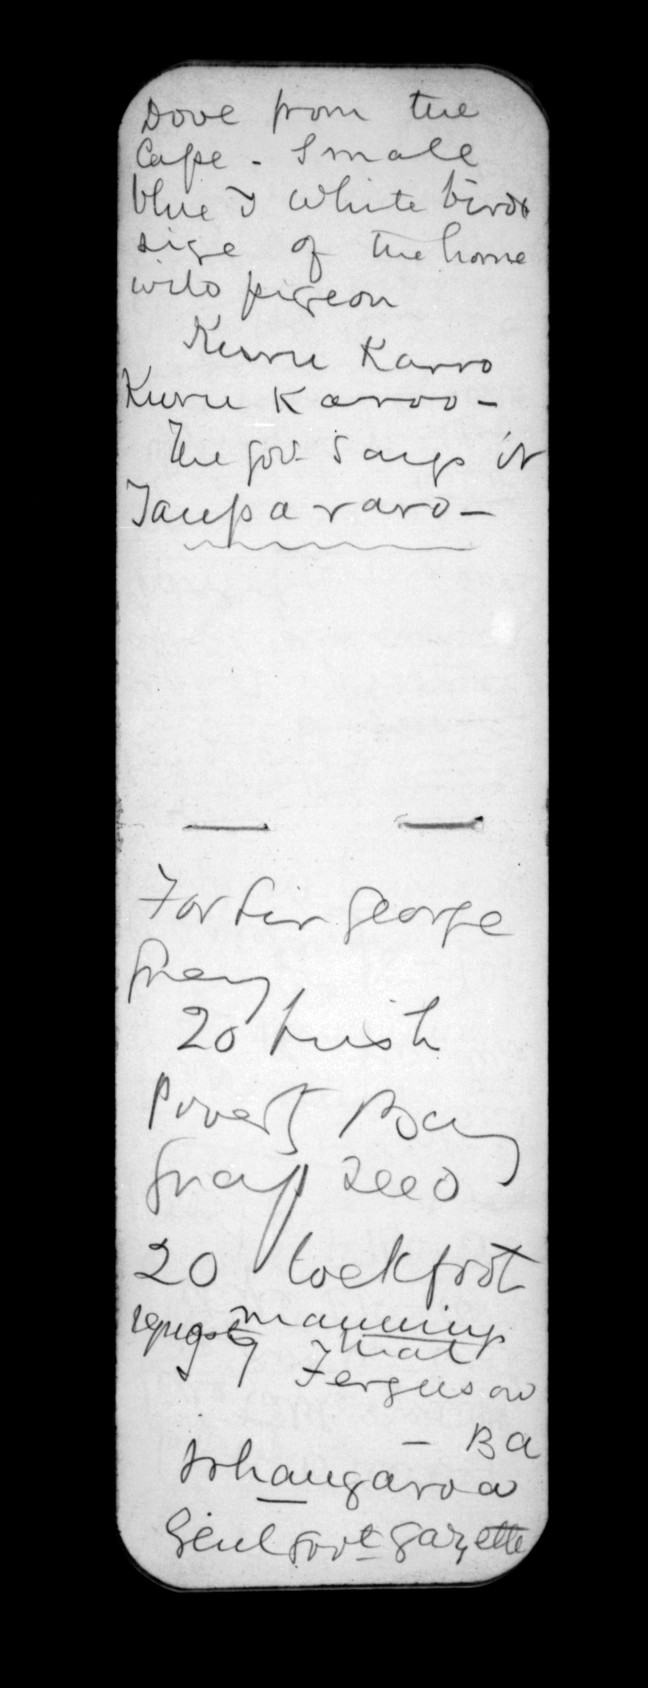 Dove from the
Cape - Small
blue & white birds
size of the home
wild pigeon
Kuru Karro
Kuru Karoo -
The gov. says it
Tauparoro -
For Sir George
Grey
20 bush
Poverty Bay
Grap seed
20 Cockfoot
manning
that
Ferguson
- Ba
Whangaroa
Genl Govt Gazette